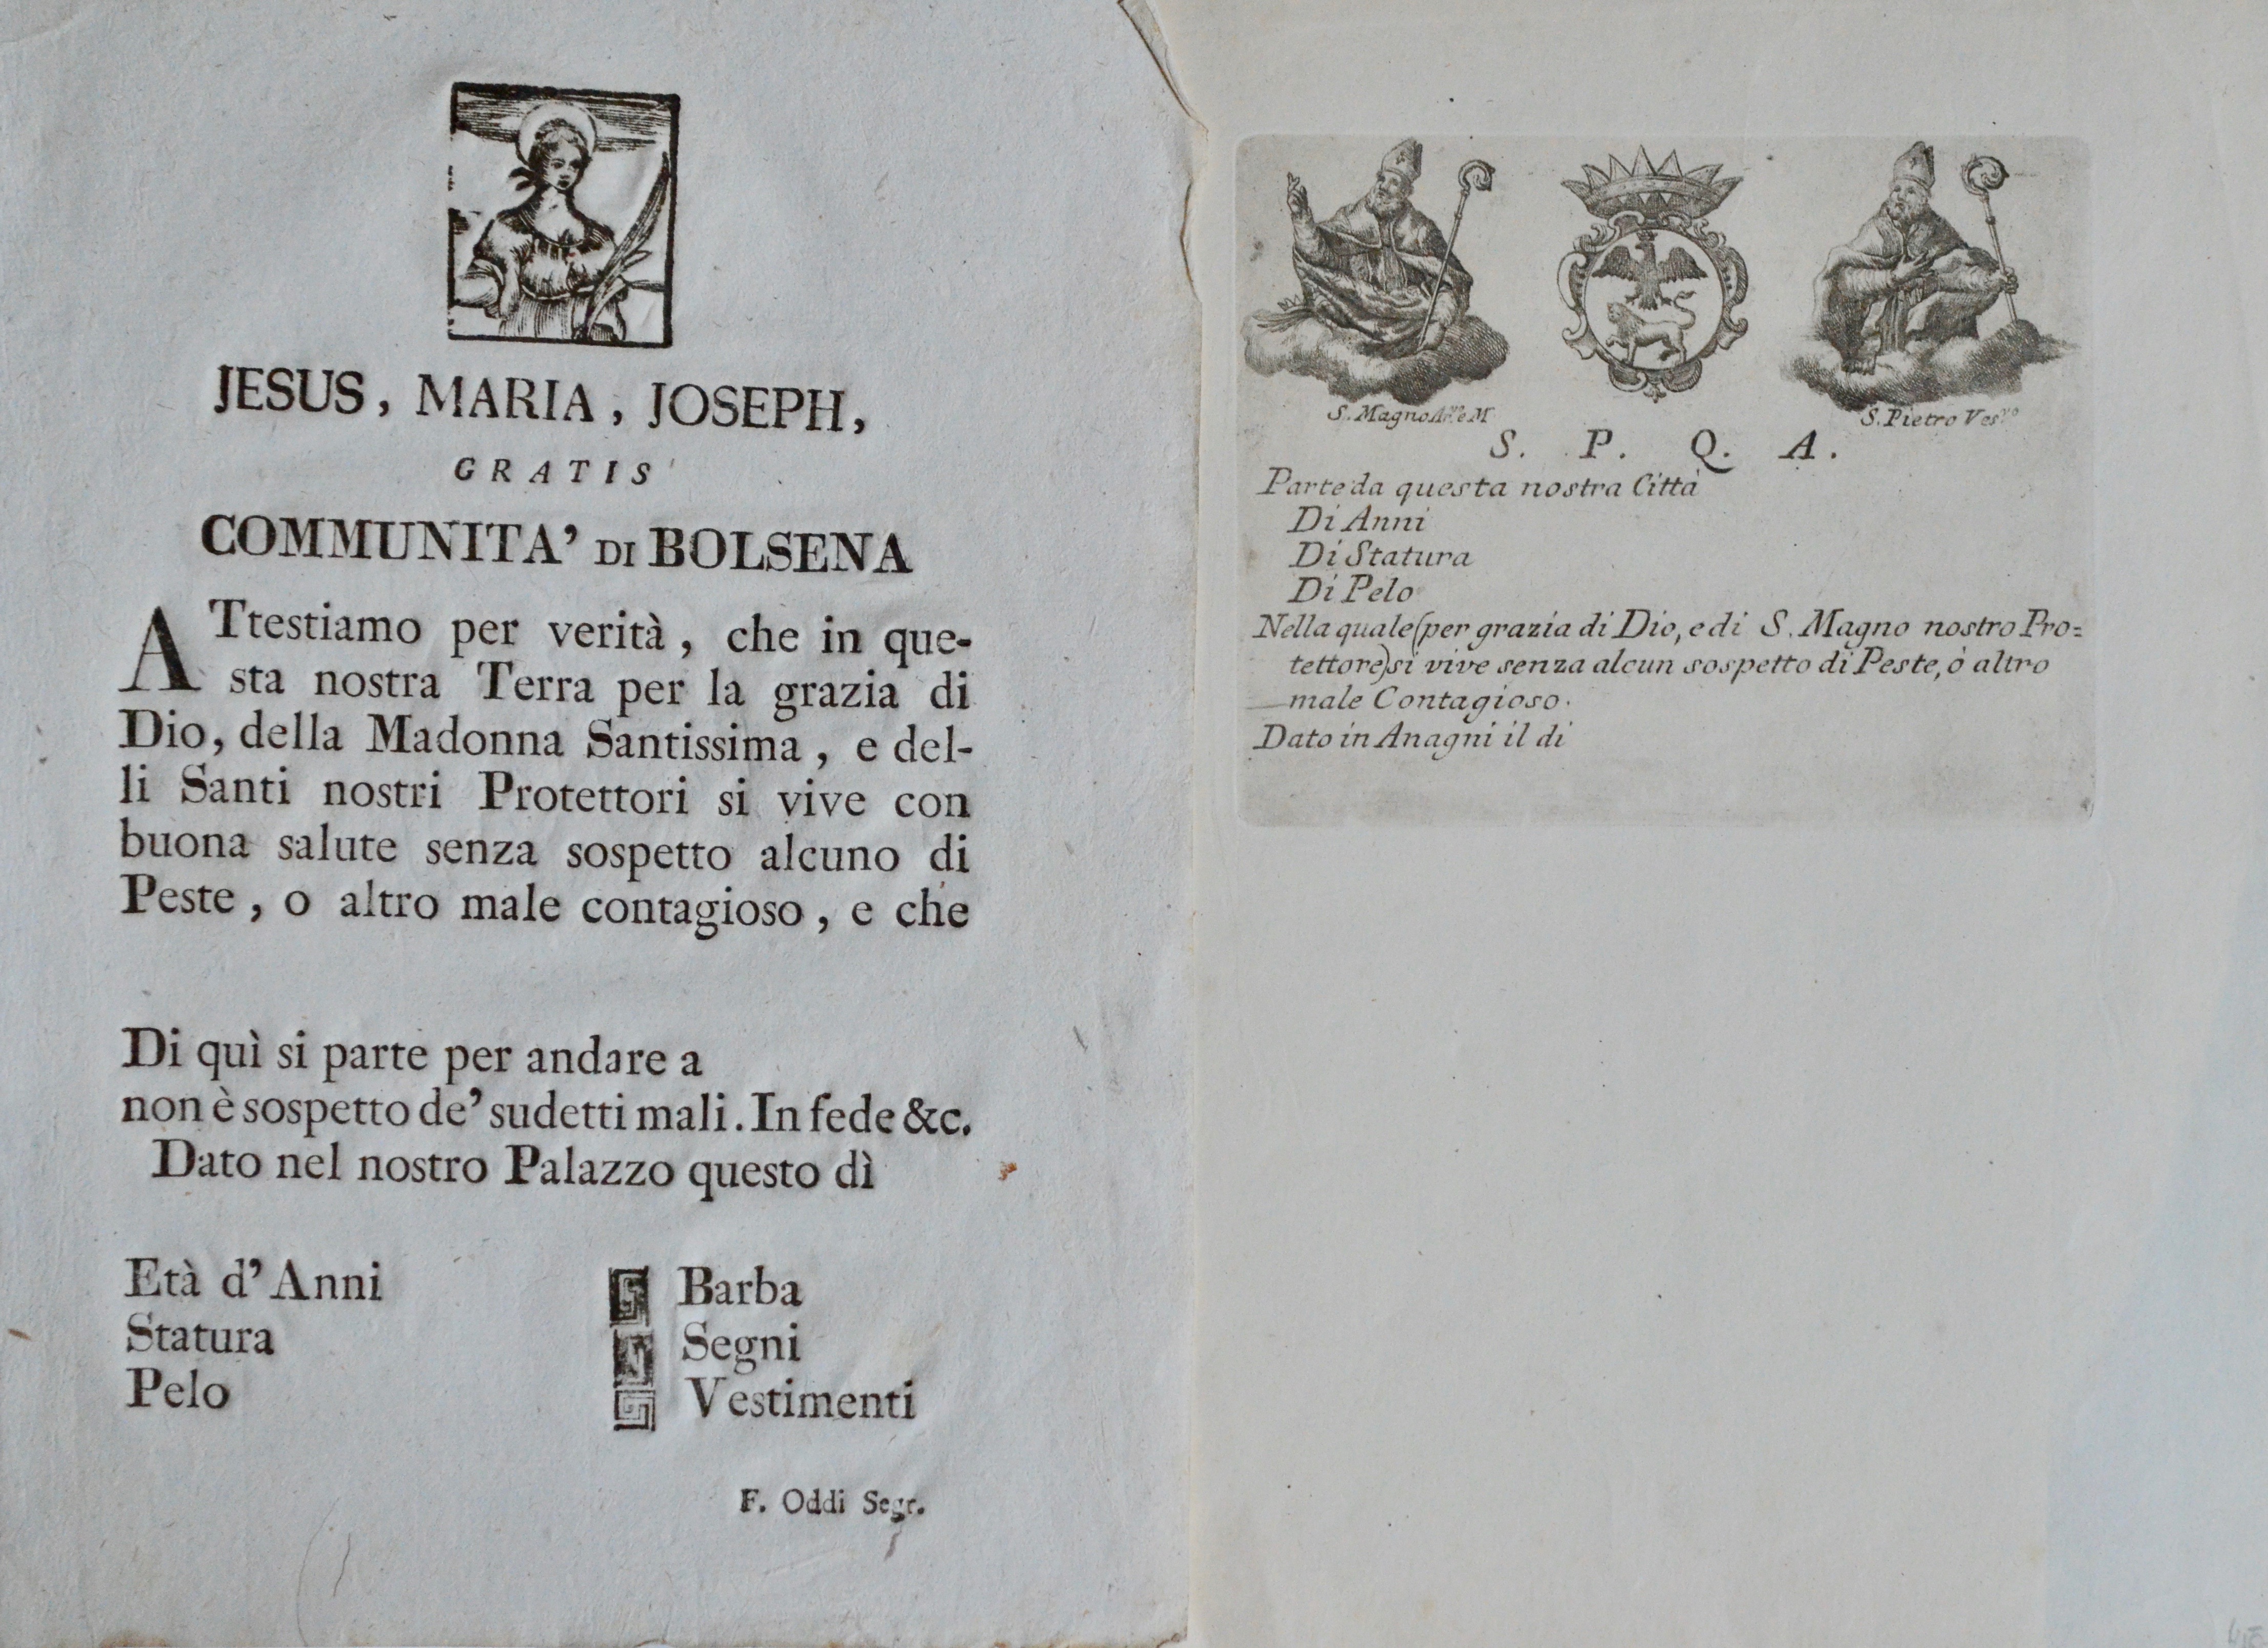 JESUS, MARIA, JOSEPH,
GRATIS
COMMUNITA' DI BOLSENA
ATtestiamo per verità, che in que-
sta nostra Terra per la grazia di
Dio, della Madonna Santissima, e del-
li Santi nostri Protettori si vive con
buona salute senza sospetto alcuno di
Peste, o altro male contagioso, e che
Di quì si parte per andare a
non è sospetto de' sudetti mali. In fede &c.
Dato nel nostro Palazzo questo dì
Età d'Anni
Statura
Pelo
Barba
Segni
Vestimenti
F. Oddi Segr.
S. Magno e M
S. Pietro Ves.vo
S. P. Q. A.
Parte da questa nostra Città
Di Anni
Di Statura
Di Pelo
Nella quale (per grazia di Dio, e di S. Magno nostro Pro=
tettore) si vive senza alcun sospetto di Peste, ò altro
male Contagioso.
Dato in Anagni il di